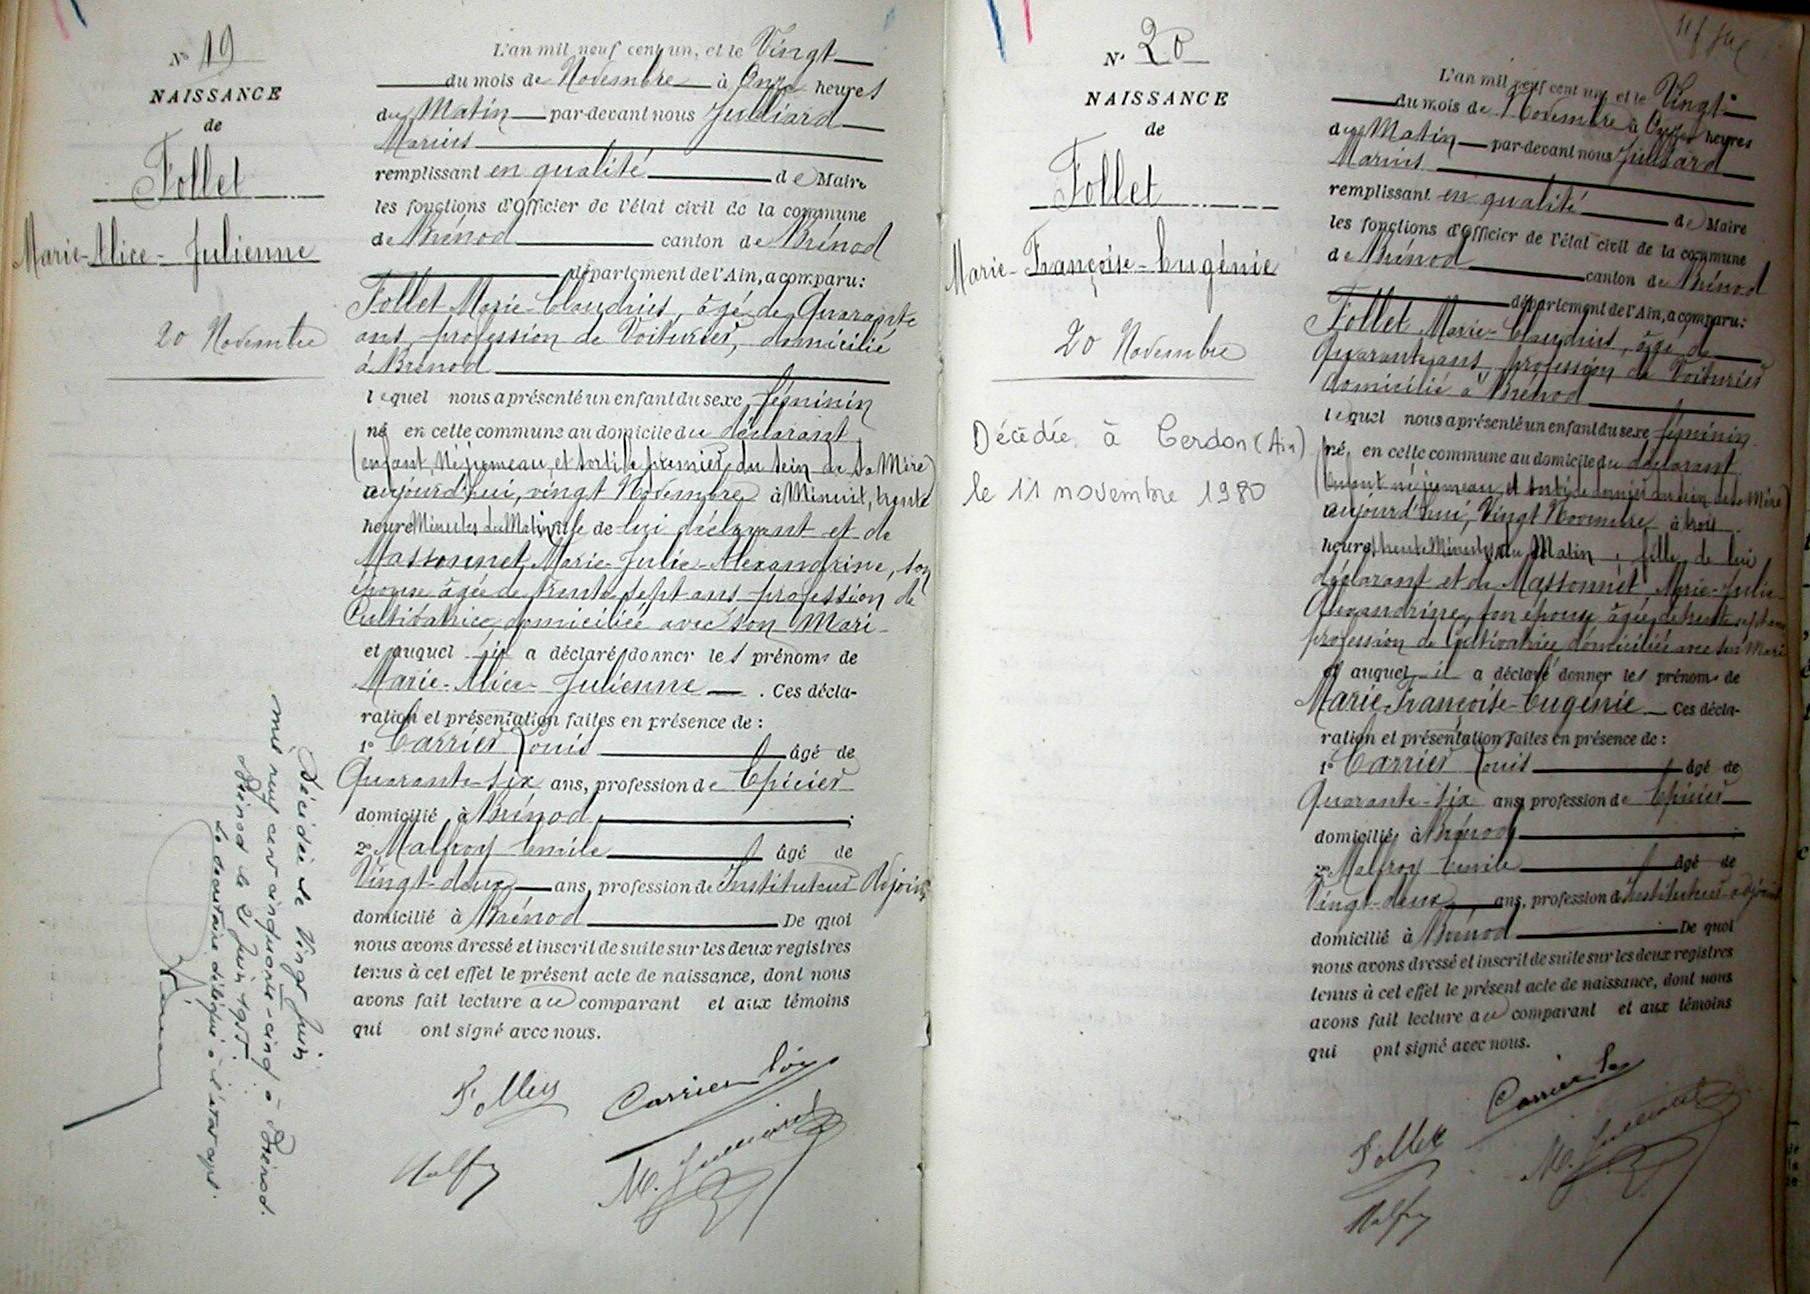 N° 19
NAISSANCE
de
Follet
Marie-Alice-Julienne
20 Novembre
L'an mil neuf cent un, et le Vingt
du mois de Novembre à Onze heures
du Matin par-devant nous Julliard
Marius
remplissant en qualité de Maire
les fonctions d'Officier de l'état civil de la commune
de Brénod canton de Brénod
département de l'Ain, a comparu:
Follet Marie-Claudius, âgé de Quarante
ans, profession de Voiturier, domicilié
à Brénod
lequel nous a présenté un enfant du sexe féminin
né en cette commune au domicile du déclarant
(enfant né jumeau, et sorti le premier du sein de sa Mère)
aujourd'hui, vingt Novembre à Minuit, trente
heure Minutes du Matin, fille de lui déclarant et de
Massonnet Marie-Julie-Alexandrine, son
épouse âgée de trente sept ans profession de
Cultivatrice domiciliée avec son Mari
et auquel il a déclaré donner les prénoms de
Marie-Alice-Julienne. Ces décla-
ration et présentation faites en présence de:
1° Carrier Louis âgé de
Quarante-six ans, profession de Epicier
domicilié à Brénod
2° Malfroy Emile âgé de
Vingt-deux ans, profession de Instituteur Adjoint
domicilié à Brénod De quoi
nous avons dressé et inscrit de suite sur les deux registres
tenus à cet effet le présent acte de naissance, dont nous
avons fait lecture au comparant et aux témoins
qui ont signé avec nous.
Follet Carrier Loui
Malfroy M. Julliard
Décédée le Vingt Juin
mil neuf cent cinquante-cinq à Brénod.
Brénod le 21 Juin 1955
Le secrétaire délégué à l'état civil.
N° 20
NAISSANCE
de
Follet
Marie-Françoise-Eugénie
20 Novembre
Décédée à Cerdon (Ain)
le 11 novembre 1980
L'an mil neuf cent un, et le Vingt
du mois de Novembre à Onze heures
du Matin par-devant nous Julliard
Marius
remplissant en qualité de Maire
les fonctions d'Officier de l'état civil de la commune
de Brénod canton de Brénod
département de l'Ain, a comparu:
Follet Marie-Claudius, âgé de
Quarante ans, profession de Voiturier
domicilié à Brénod
lequel nous a présenté un enfant du sexe féminin
né, en cette commune au domicile du déclarant
(enfant né jumeau, et sorti le dernier du sein de sa Mère)
aujourd'hui, Vingt Novembre à trois
heures trente Minutes du Matin, fille de lui
déclarant et de Massonnet Marie-Julie-
Alexandrine, son épouse âgée de trente sept ans
profession de Cultivatrice domiciliée avec son Mari
et auquel il a déclaré donner les prénoms de
Marie-Françoise-Eugénie Ces décla-
ration et présentation faites en présence de:
1° Carrier Louis âgé de
Quarante-six ans, profession de Epicier
domicilié à Brénod
2° Malfroy Emile âgé de
Vingt-deux ans, profession de Instituteur adjoint
domicilié à Brénod De quoi
nous avons dressé et inscrit de suite sur les deux registres
tenus à cet effet le présent acte de naissance, dont nous
avons fait lecture au comparant et aux témoins
qui ont signé avec nous.
Carrier Lo
Follet M. Julliard
Malfroy